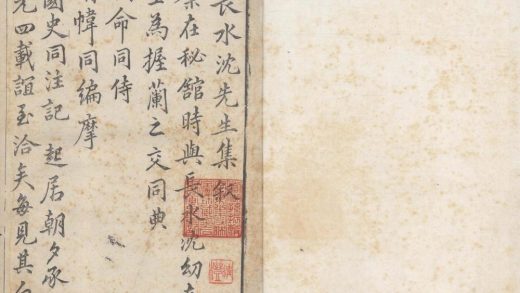 長水沈先生集叙
在秘館時與長水沈幼
為握蘭之交同典
命同侍
幃同編摩
國史同注記 起居朝夕承
四載誼至洽矣每見其